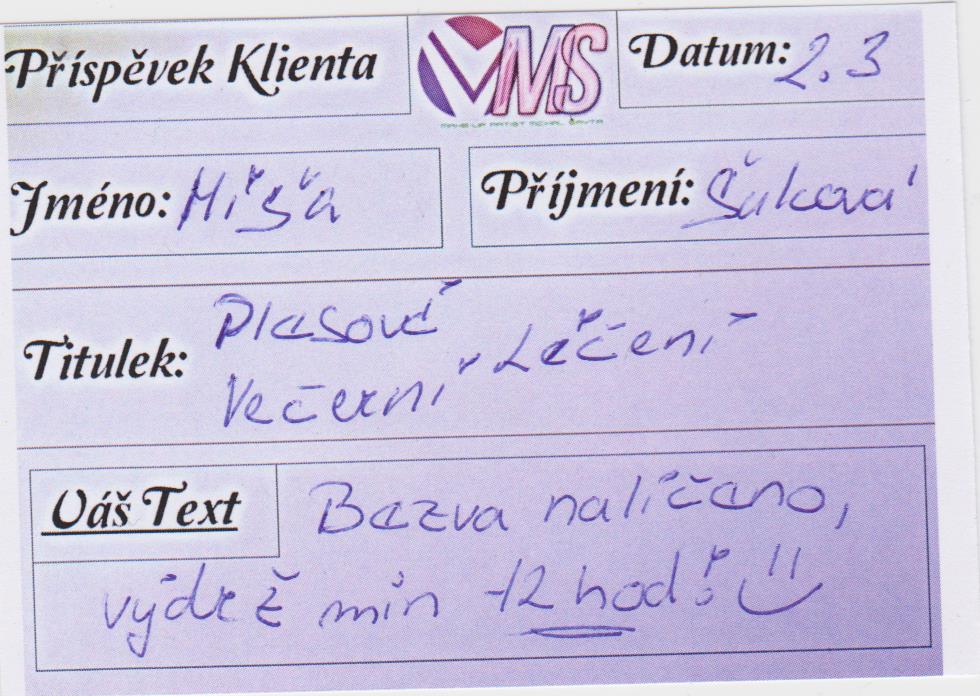 Příspěvek Klienta
MS
MAKE-UP ARTIST
Datum: 2.3
Jméno: Míša
Příjmení: Šuková
Titulek: Plesové
Večerní Léčení
Váš Text Bezva nalíčeno,
výdrž min 12 hod! :)